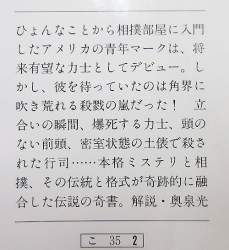 ひょんなことから相撲部屋に入門
したアメリカの青年マークは、将
来有望な力士としてデビュー。し
かし、彼を待っていたのは角界に
吹き荒れる殺戮の嵐だった！　立
合いの瞬間、爆死する力士、頭の
ない前頭、密室状態の土俵で殺さ
れた行司……本格ミステリと相
撲、その伝統と格式が奇跡的に融
合した伝説の奇書。解説・奥泉光
こ 35 2